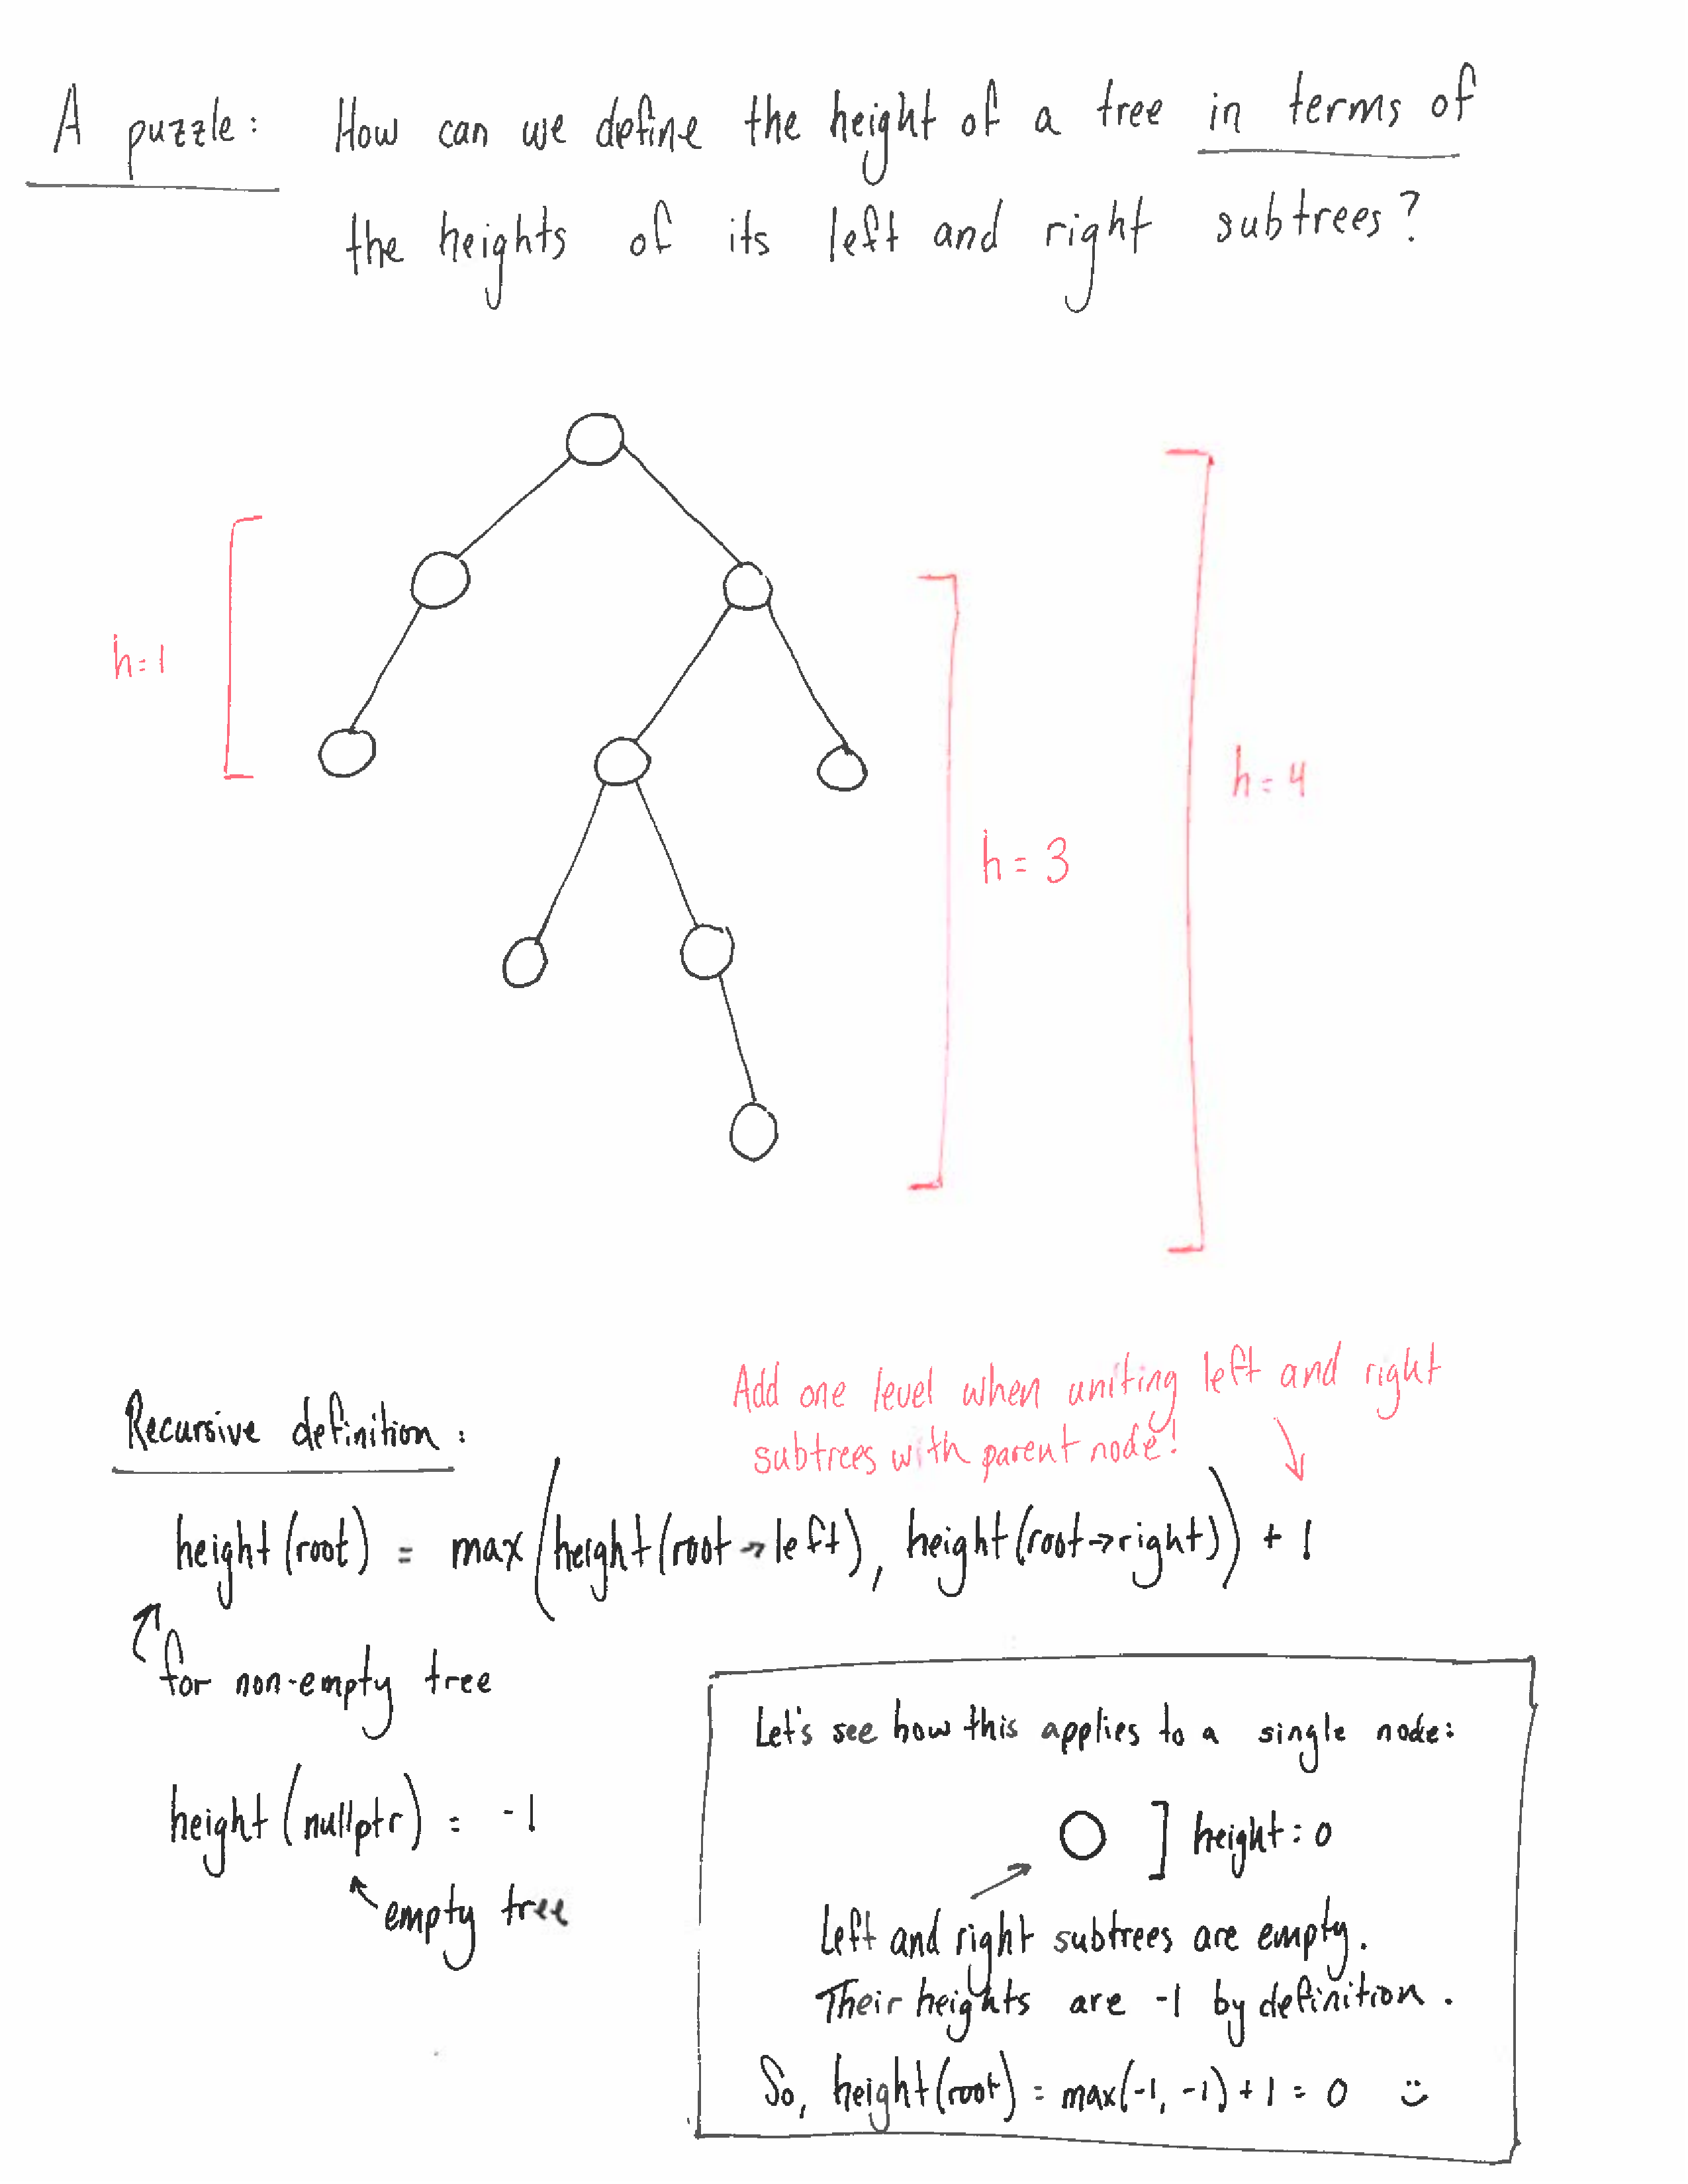 A puzzle: How can we define the height of a tree in terms of
the heights of its left and right subtrees?
h=1
h=4
h=3
Add one level when uniting left and right
subtrees with parent node!
Recursive definition:
height(root) = max(height(root→left), height(root→right)) + 1
for non-empty tree
height(nullptr) = -1
empty tree
Let's see how this applies to a single node:
] height=0
Left and right subtrees are empty.
Their heights are -1 by definition.
So, height(root) = max(-1, -1) + 1 = 0 :)